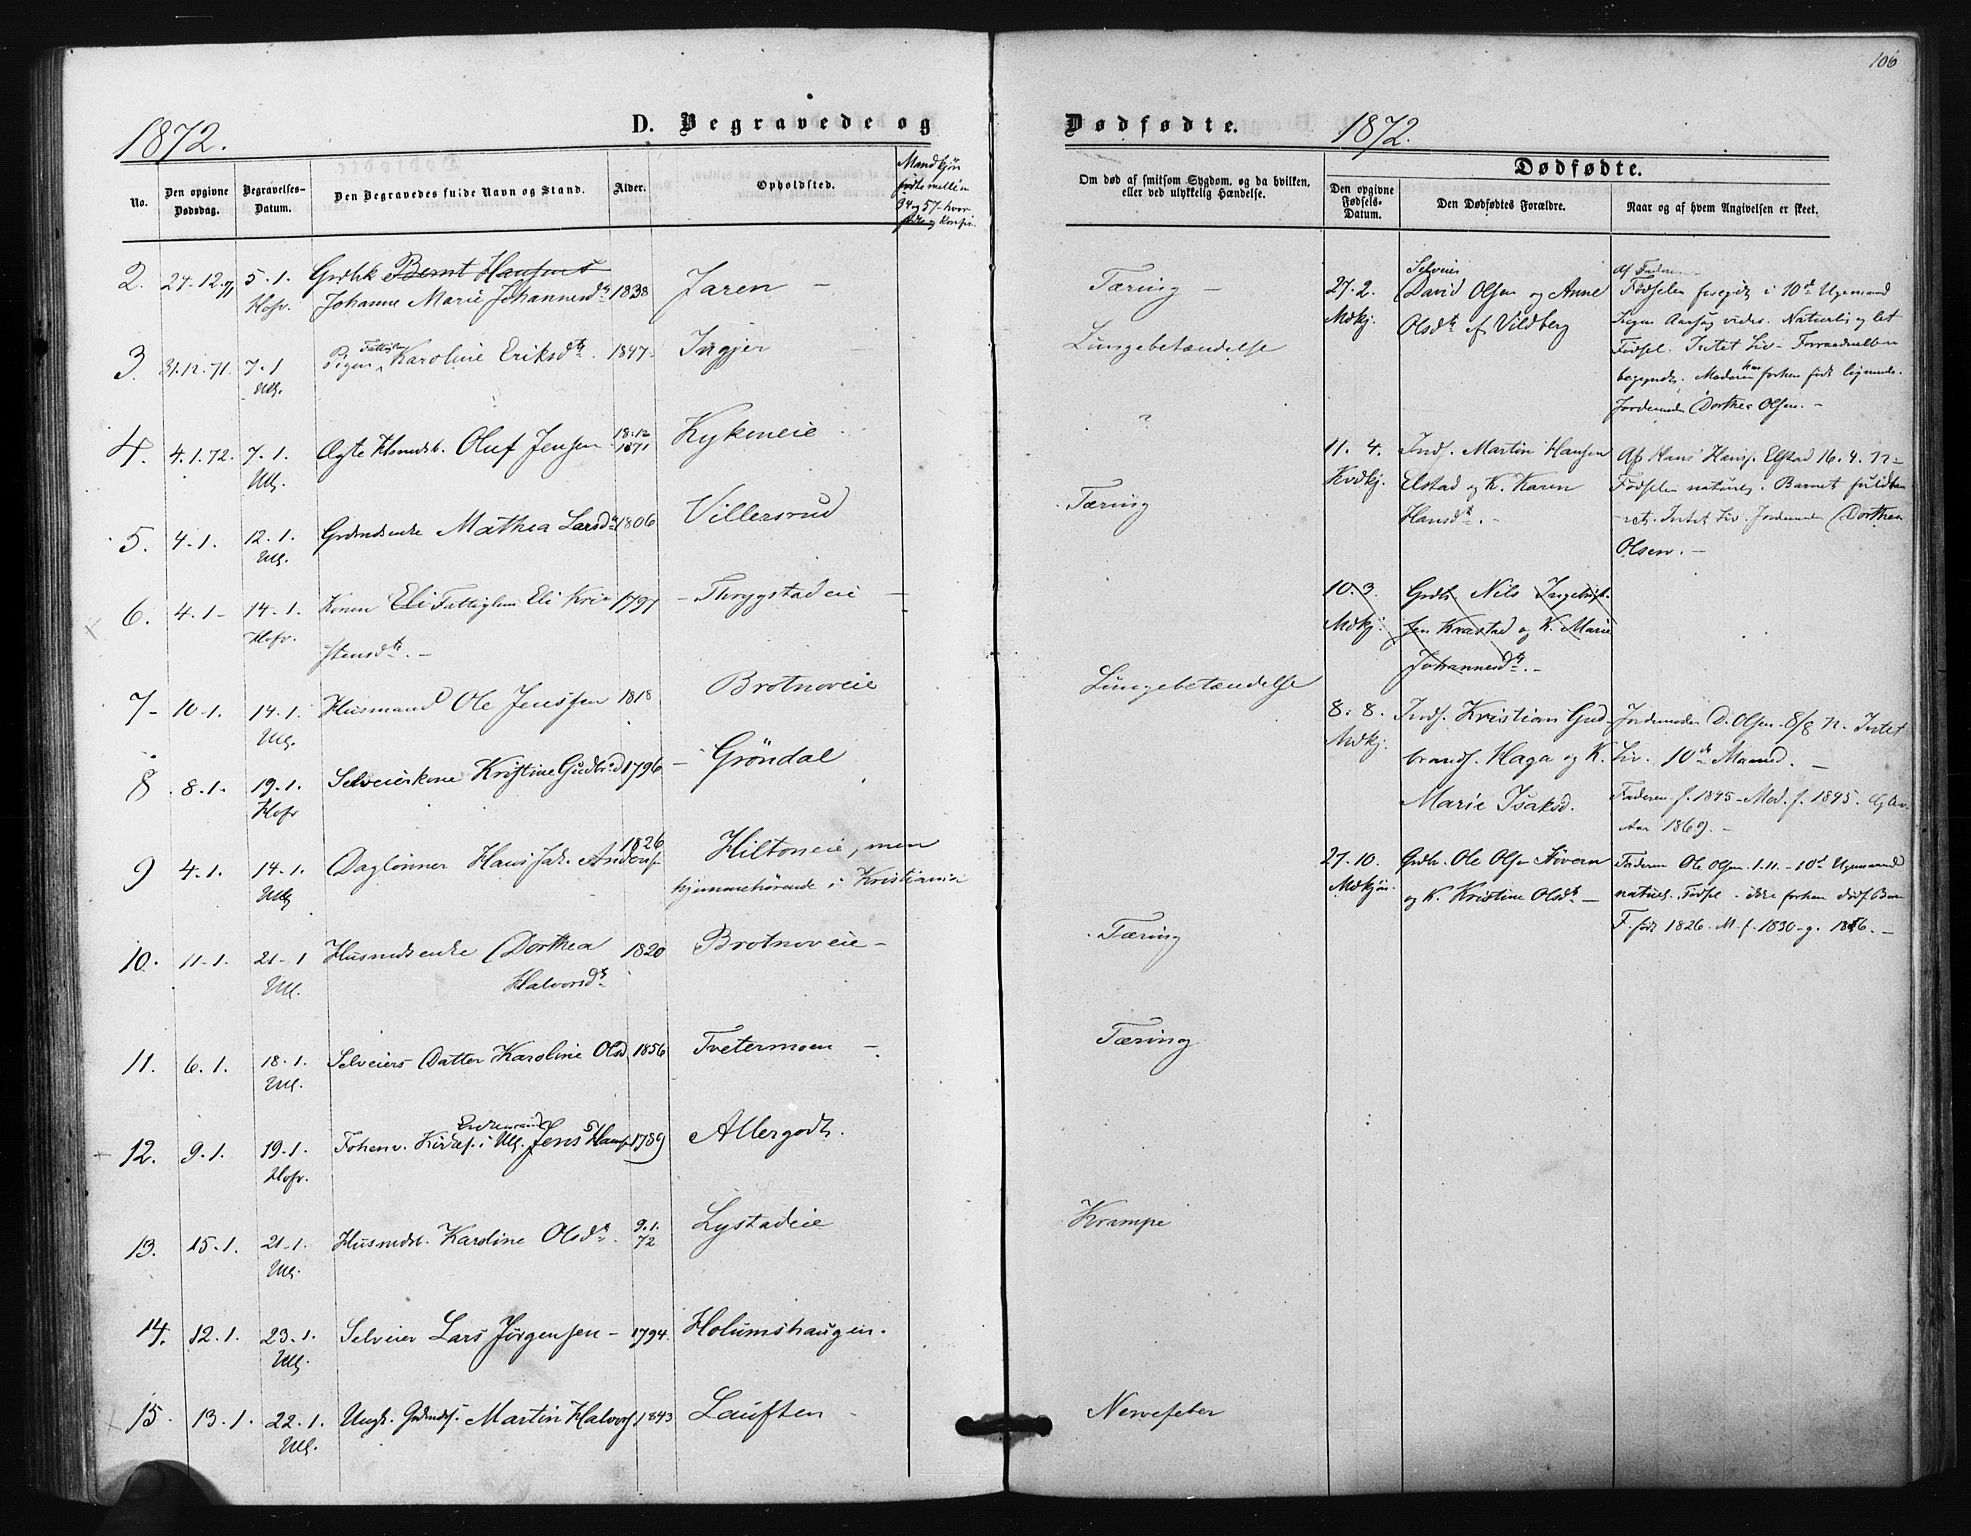 106
1872.
D. Begravede og
Dødfødte.
1872.
No.
Den opgivne Dødsdag.
Begravelses-Datum.
Den Begravedes fulde Navn og Stand.
Alder.
Opholdsted.
Mandkjøn
fødte mellem
og 57- hvor
Om død af smitsom Sygdom, og da hvilken,
eller ved ulykkelig Hændelse.
Dødfødte.
Den opgivne Fødsels-Datum.
Den Dødfødtes Forældre.
Naar og af hvem Angivelsen er skeet.
2. 27.12.71 5.1. Grdbk Bernt Hansens
Hofv. Johanne Marie Johannesdtr 1838 Jaren - Tæring -
3. 31.12.71. 7.1 Pigen Fattiglem Karoline Eriksdtr. 1847. Ingjer Lungebetændelse
Ull.
4. 4.1.72. 7.1. Ægte Husmdsb. Oluf Jensen 18.12 1871 Kykeneie "
Ull.
5. 4.1. 12.1. Grdmdsenke Mathea Larsdtr 1806 Villersrud Tæring
Ull.
6. 4.1- 14.1. Konen Eli Fattiglem Eli Kri- 1797 - Thrygstadeie -
Hofv. stensdtr. -
7- 10.1. 14.1. Husmand Ole Jenssen 1818 Brotnoveie Lungebetændelse
Ull.
8. 8.1. 19.1. Selveierkone Kristine Gudbrd 1796 - Grøndal
Hofv
9 4.1. 14.1. Daglønner Hans Jak. Anders. 1826 Hiltoneie, men
Ull hjemmehørende i Kristiania
10. 11.1. 21.1 Husmdsenke Dorthea 1820 Brotnoveie - Tæring
Ull. Halvorsdtr
11. 6.1. 18.1. Selveiers Datter Karoline Olsd. 1856 Tvetermoen - Tæring
Ull.
12. 9.1. 19.1. Fohenv. Kirkes. i Ull. Jens Hans. 1789 Allergodt.
Hofv.
13. 15.1. 21.1. Husmdsb. Karoline Olsdtr. 9.1. 72 Lystadeie Krampe
Ull.
14. 12.1. 23.1. Selveier Lars Jørgensen - 1794. Holumshaugen.
Ull.
15. 13.1. 22.1. Ungk. Grdmds. Martin Halvors 1843 Lauften - Nervefeber
Ull.
27.2. Selveier Af Faderen
Mdkj. David Olsen og Anne Fødselen foregik i 10de Ugemaaned
Olsdtr af Vildberg Ingen Aarsag vides. Naturlig og let
Fødsel. Intet Liv - Forraadnelsen
begyndt. Moderen har forhen født lignende.
Jordemoder Dorthea Olsen. -
11.4. Inds. Martin Hansen Af Hans Hans. Elstad 16.4.72 -
Kvdkj. Elstad og K. Karen Fødselen naturlig. Barnet fuldbaa-
Hansdtr. - ret. Intet Liv. Jordemoder Dorthea
Olsen. -
10.3. Grdbr. Nils Ingebrigt-
Mdkj. sen Kvastad og K. Marie
Johannesdtr. -
8.8. Inds. Kristian Gud- Jordemoder D. Olsen 8/8 72. Intet
Mdkj. brands. Haga og K. Liv. 10de Maaned. -
Marie Isaksd. Faderen f. 1845 - Mod. f. 1845. Gav.
Aar 1869. -
27.10. Grdbr. Ole Olsen Høvern Faderen Ole Olsen. 1.11. - 10de Ugemaaned
Mdkjøn. og K. Kristine Olsdtr - naturl. Fødsel - ikke forhen dødf. Børn
F. født 1826. M. f. 1830 - g. 1856. -